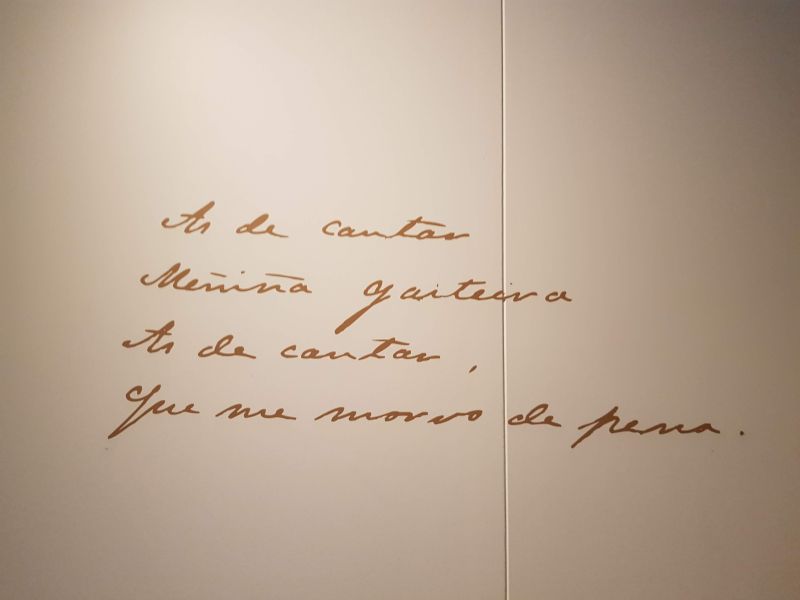 As de cantar
Meñiña gaiteira
As de cantar,
Que me morro de pena.